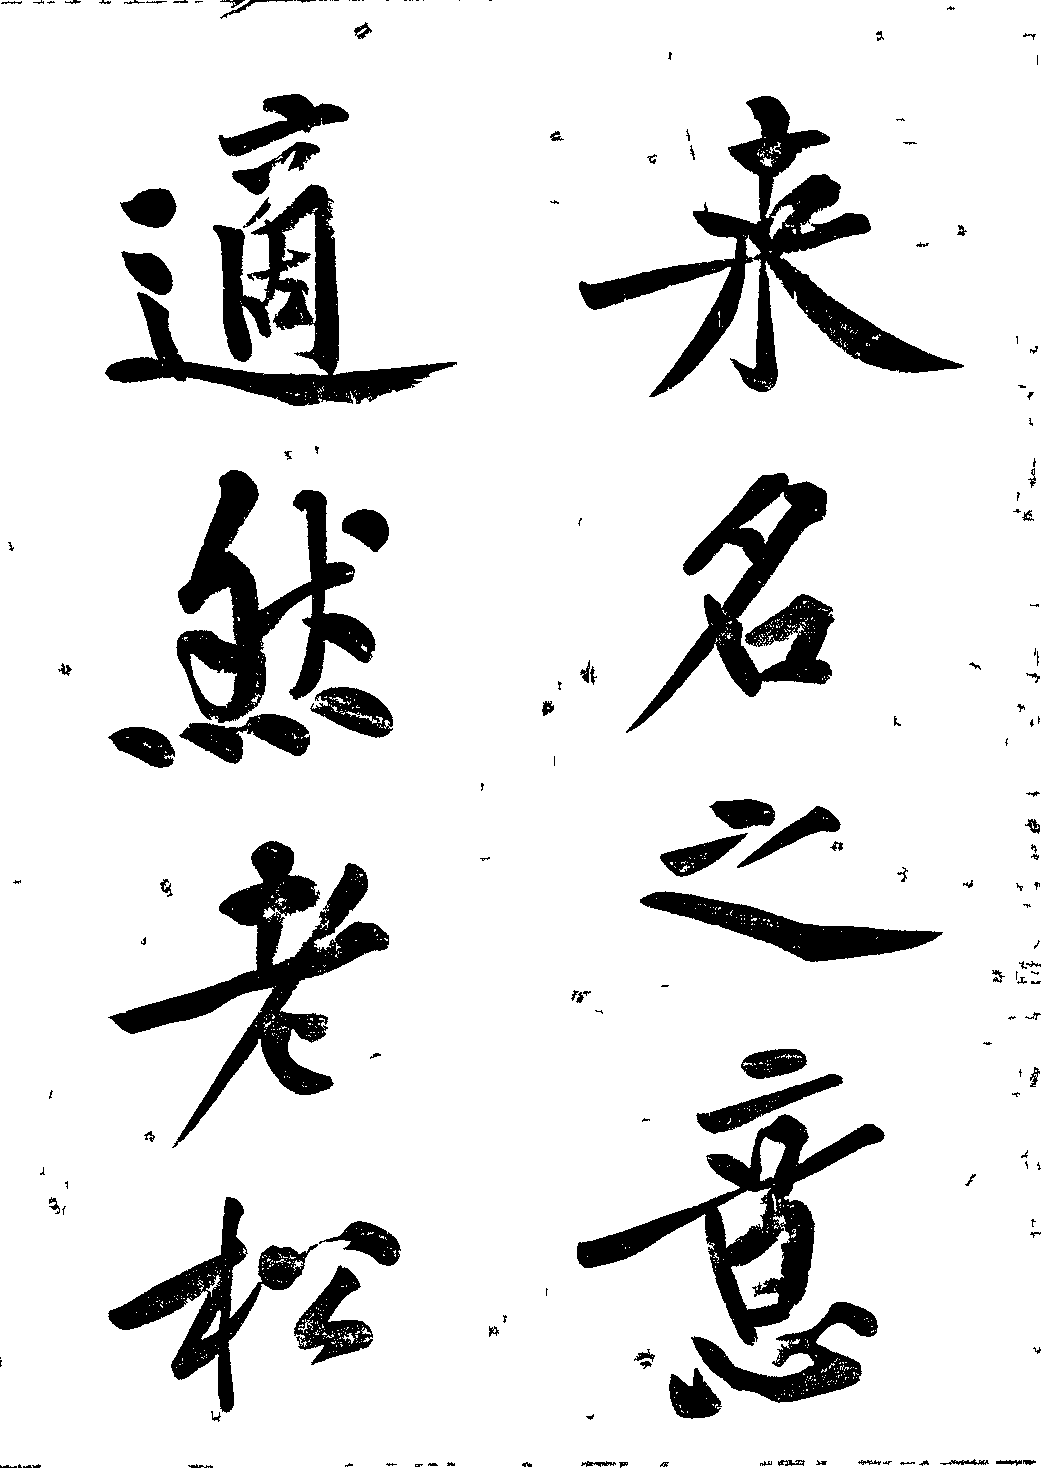 来名之意
適然老松